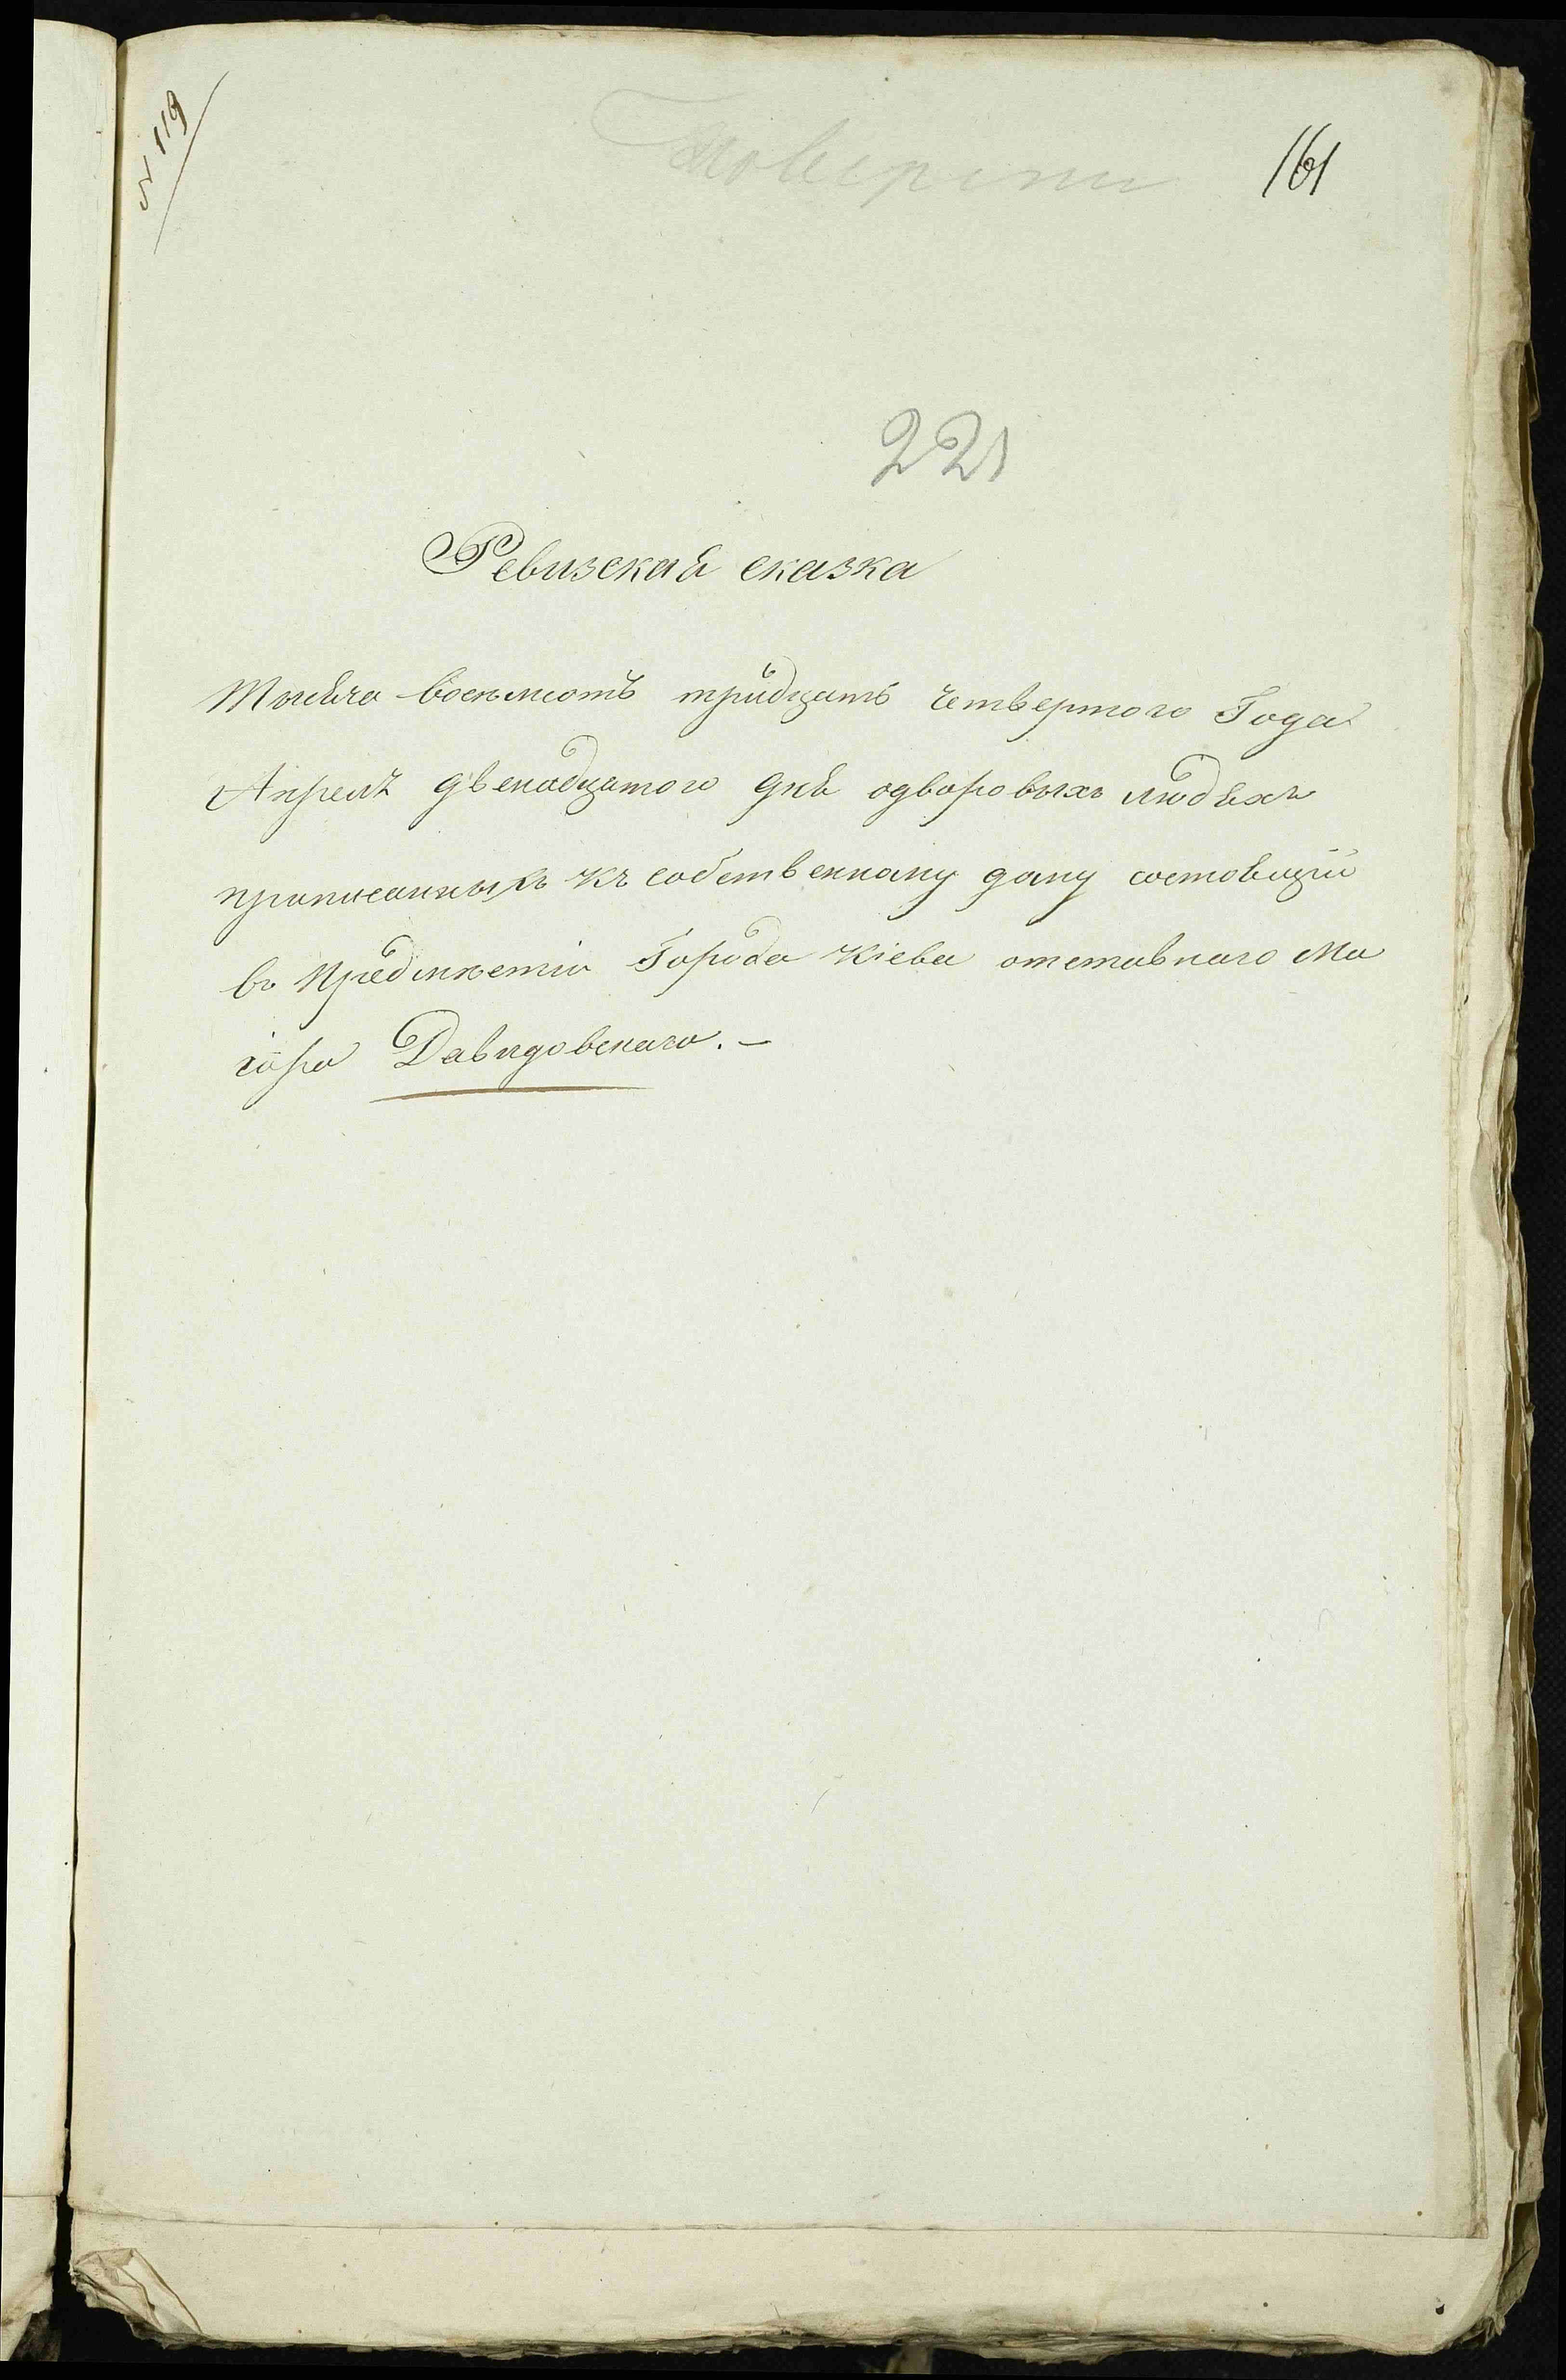 № 119
161
221
Ревизская сказка
Тысяча восемсотъ тридцать четвертого Года
Апреля двенадцатого дня одворовыхъ людяхъ
приписанныхъ къ собственному дому состоящии
въ Предмѣстіи Города Кіева отставного Ма
іора Давидовскаго. –